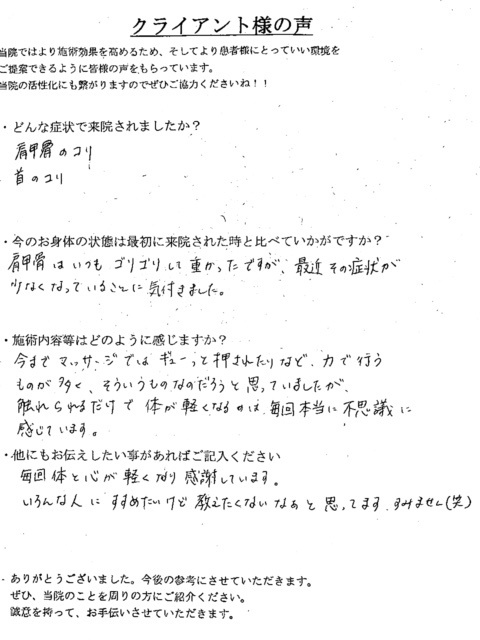 クライアント様の声
当院ではより施術効果を高めるため、そしてより患者様にとっていい環境を
ご提案できるように皆様の声をもらっています。
当院の活性化にも繋がりますのでぜひご協力くださいね！！
・どんな症状で来院されましたか？
肩甲骨のコリ
首のコリ
・今のお身体の状態は最初に来院された時と比べていかがですか？
肩甲骨はいつもゴリゴリして重かったですが、最近その症状が
少なくなっていることに気付きました。
・施術内容等はどのように感じますか？
今までマッサージではギューっと押されたりなど、力で行う
ものが多く、そういうものなのだろうと思っていましたが、
触れられるだけで体が軽くなるのは毎回本当に不思議に
感じています。
・他にもお伝えしたい事があればご記入ください
毎回体と心が軽くなり感謝しています。
いろんな人にすすめたいけど教えたくないなぁと思ってます。すみません(笑)
ありがとうございました。今後の参考にさせていただきます。
ぜひ、当院のことを周りの方にご紹介ください。
誠意を持って、お手伝いさせていただきます。